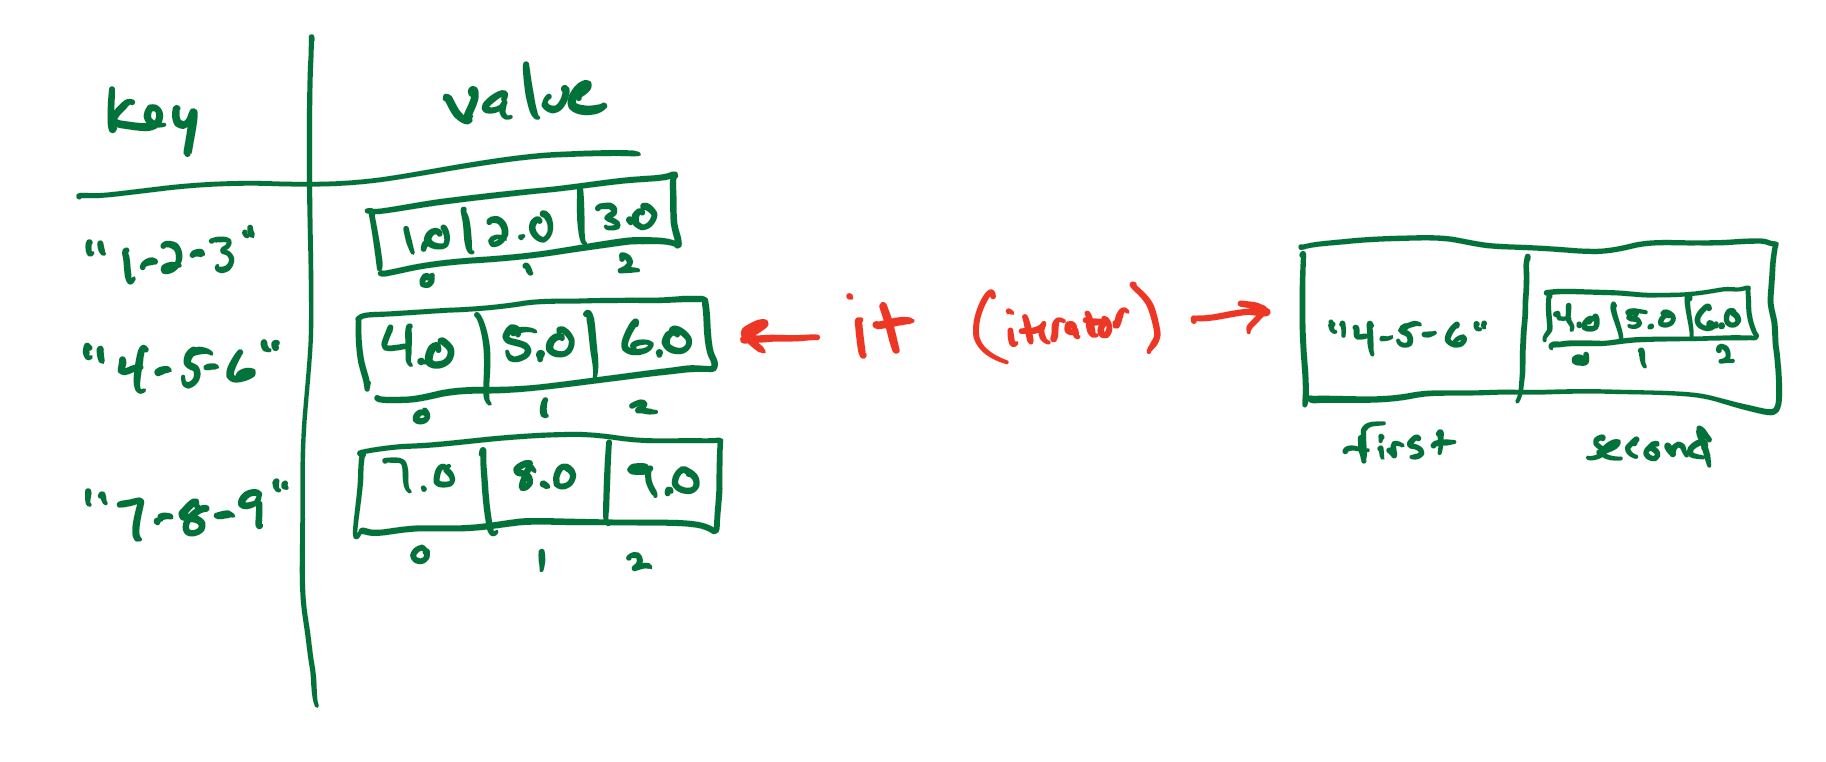 key value
"1-2-3" 1.0 2.0 3.0
0 1 2
"4-5-6" 4.0 5.0 6.0
0 1 2
"7-8-9" 7.0 8.0 9.0
0 1 2
it (iterator)
"4-5-6" 4.0 5.0 6.0
0 1 2
first second